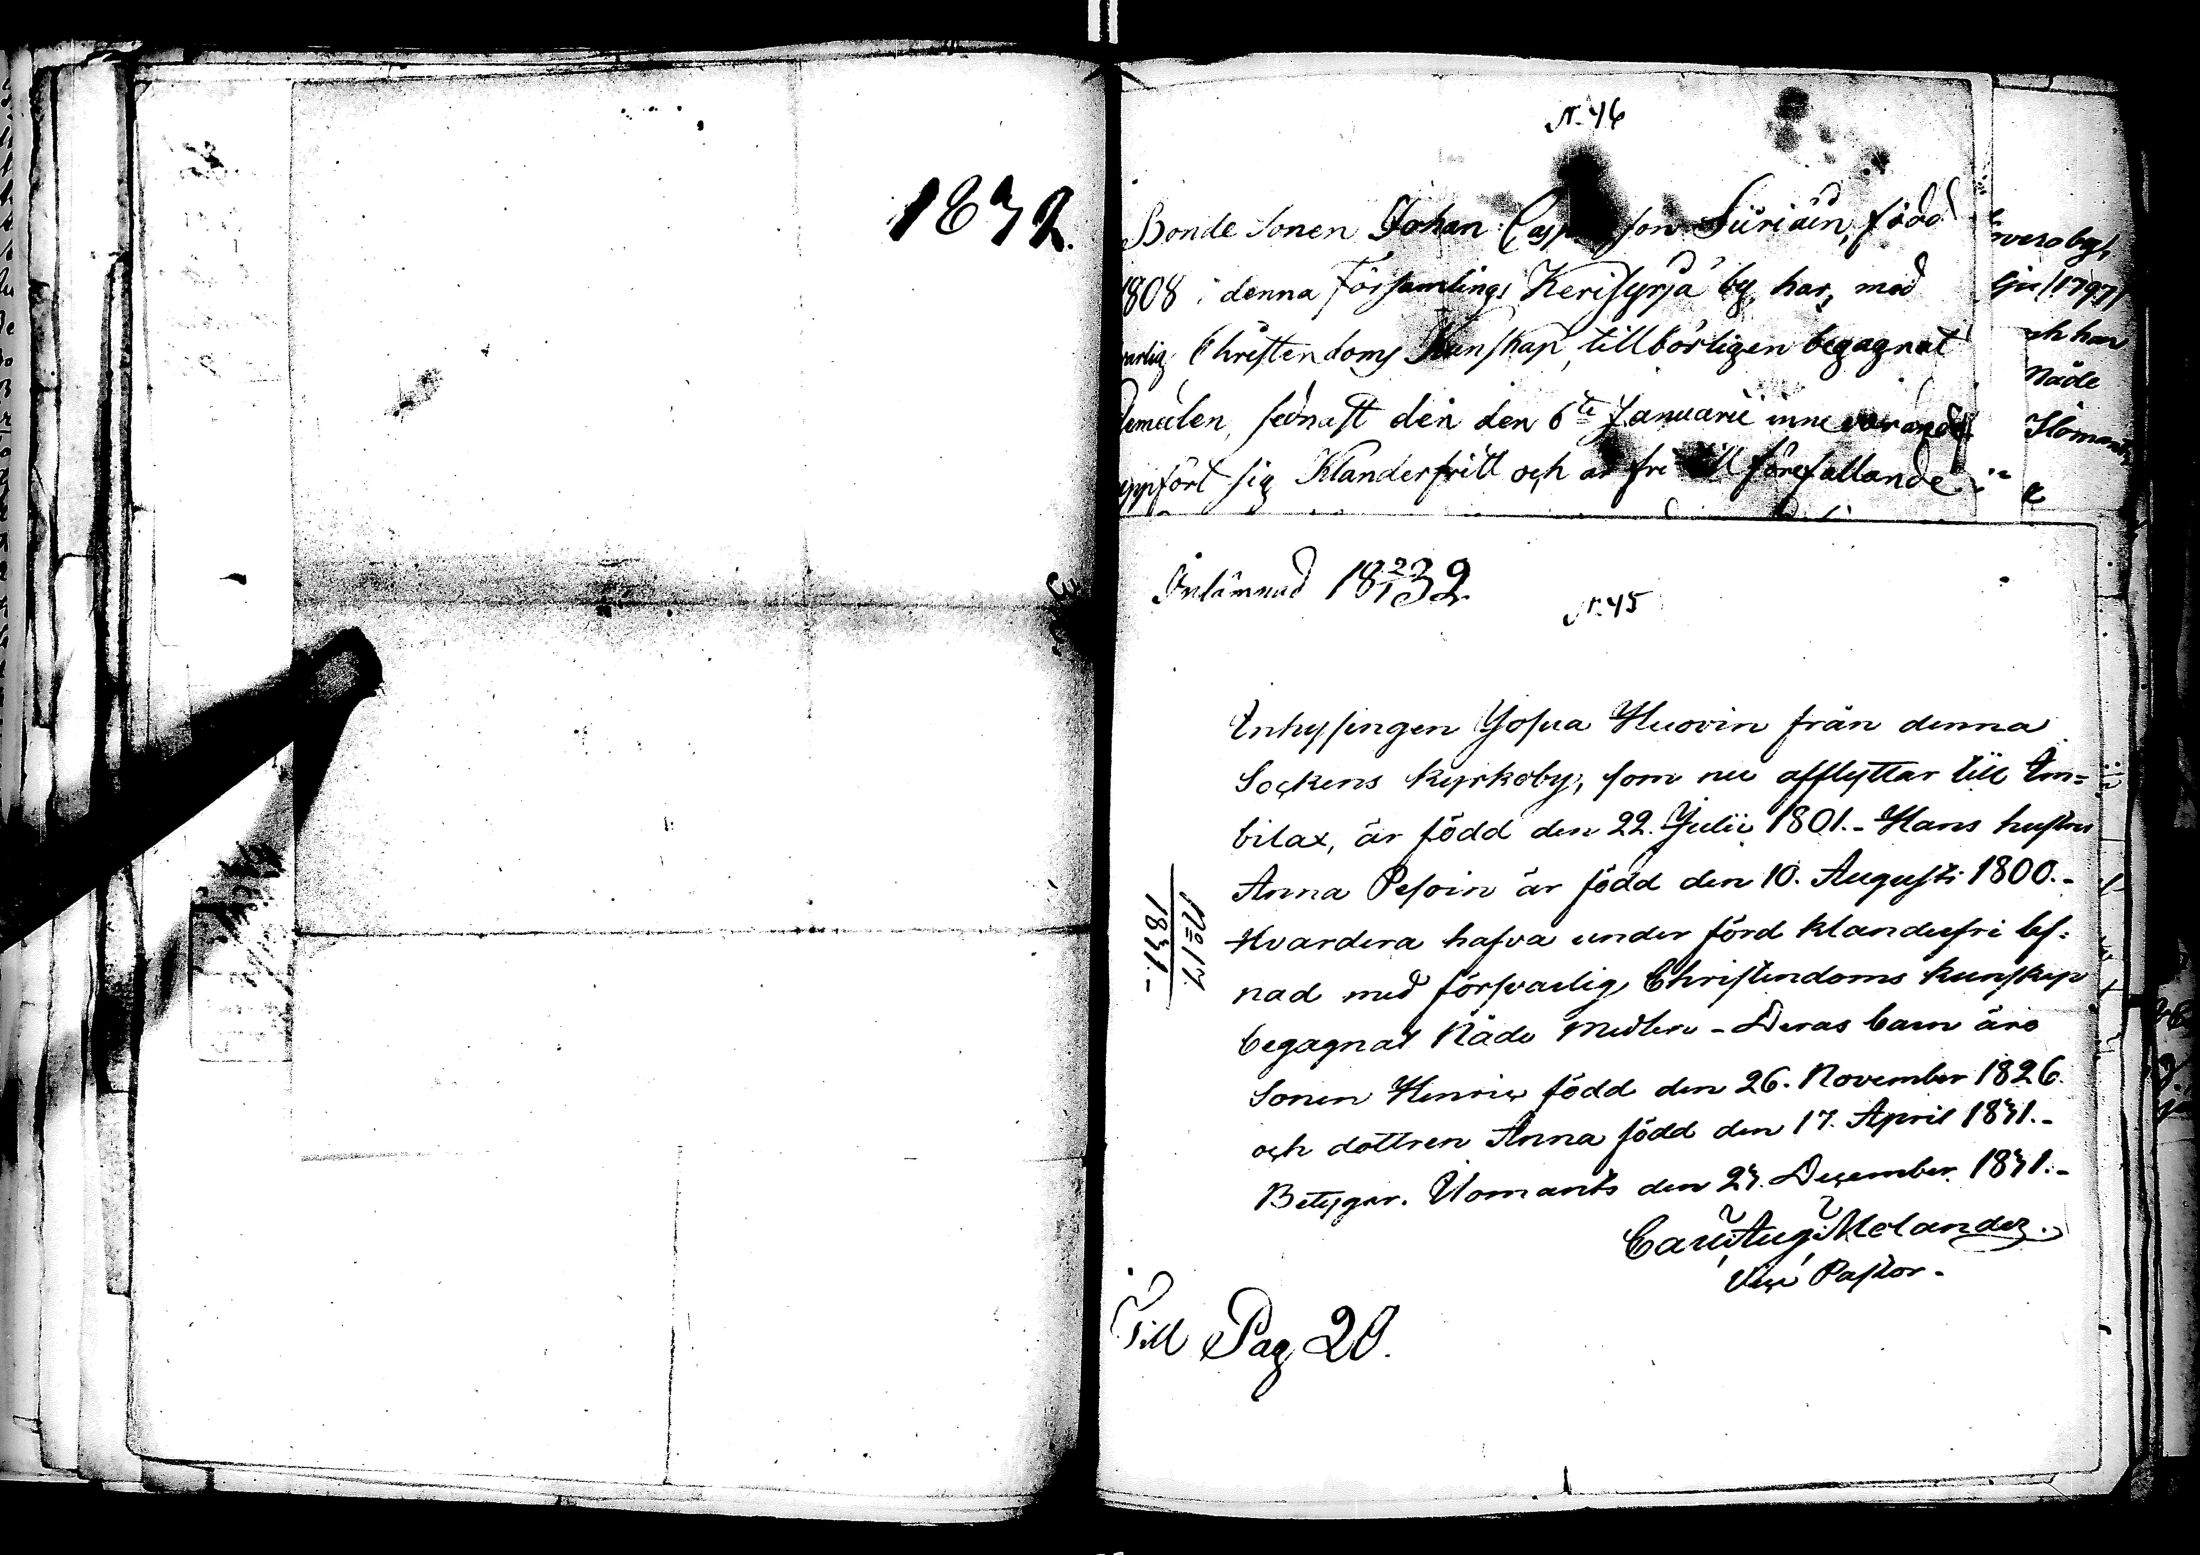 1832.
N. 46
Bonde Sonen Johan son Siiriäin, född
1808 i denna Församlings Kerisyrjä by, har, med
varlig Christendoms Kunskap, tillbörligen begagnat
demedlen, sednast den den 6te Januarii innevarande
uppfört sig Klanderfritt och är fri till förefallande
Inlämnad 18 2/1 32
N. 45
Inhysingen Josua Huovin från denna
Sockens Kyrkoby, som nu afflyttar till Im=
bilax, är född den 22. Julii 1801. - Hans hustru
Anna Pesoin är född den 10. Augusti 1800. -
Hvardera hafva under förd klanderfri lef=
nad med försvarlig Christendoms kunskap
begagnat Nåde Medlen - Deras barn äro
Sonen Henric född den 26. November 1826.
och dottren Anna född den 17. April 1831. -
Betygar. Ilomants den 23. December. 1831. -
Carl Aug. Molander.
Vice Pastor -
No 17.
1831. -
Till Pag 20.
by,
/1797/
och har
Nåde
Ilomants